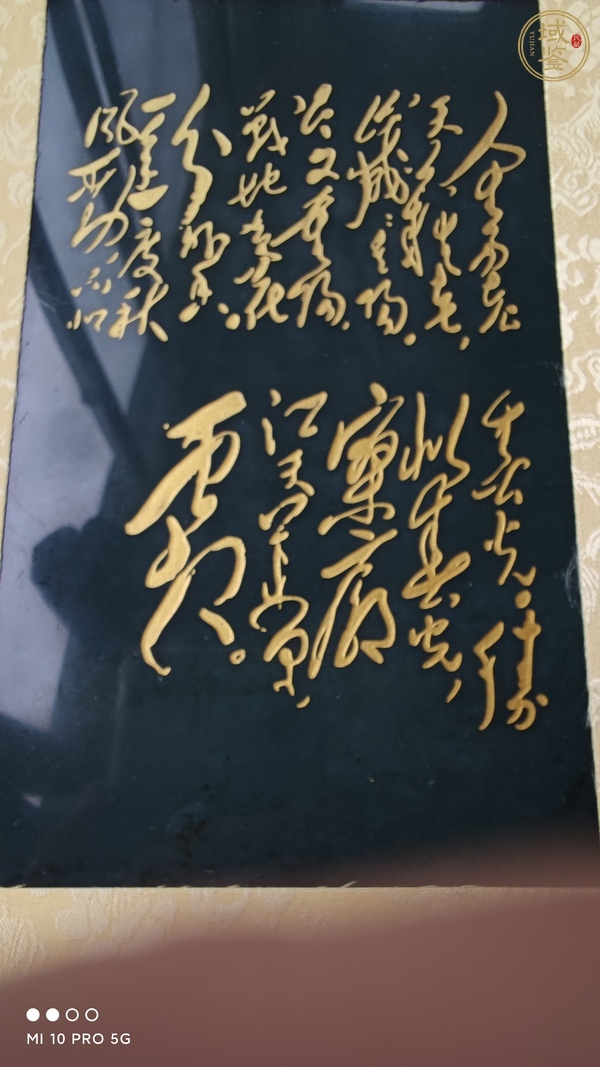 人生易老
天難老,
歲歲重陽。
今又重陽,
戰地黄花
分外香。
一年一度秋
風勁不似
春光。勝
似春光,
寥廓
江天萬里
霜。
域鉴
YUJIAN
MI 10 PRO 5G